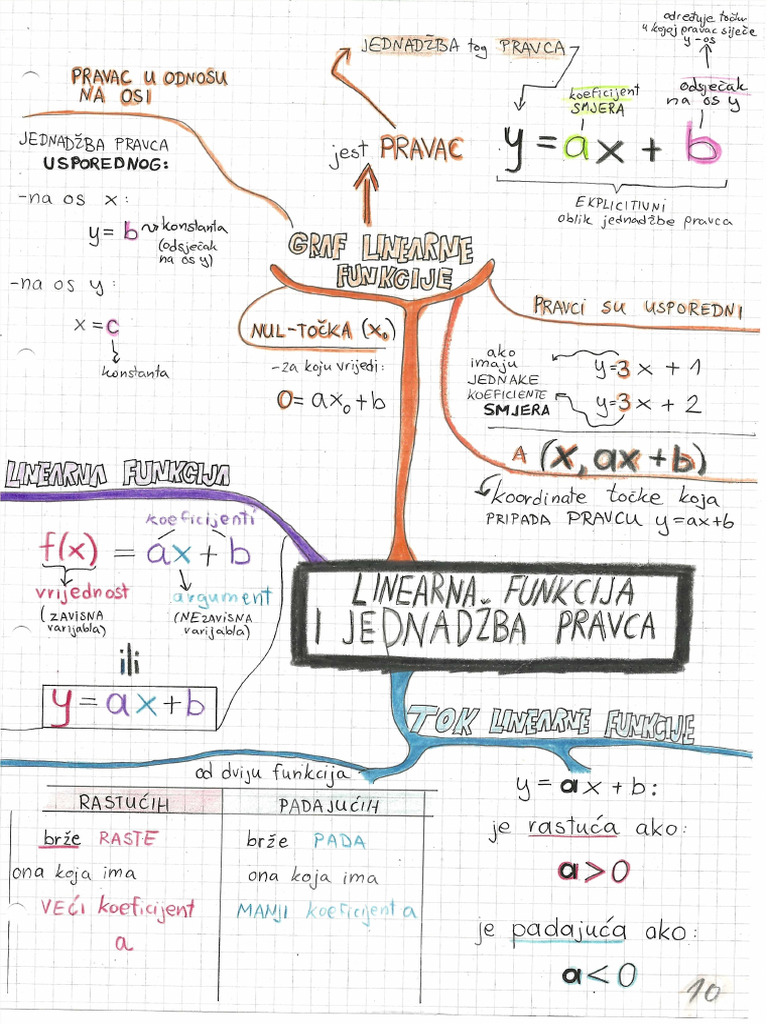 određuje točku
u kojoj pravac siječe
y-os
JEDNADŽBA tog PRAVCA
odsječak
na os y
koeficijent
SMJERA
y = ax + b
EXPLICITIVNI
oblik jednadžbe pravca
jest PRAVAC
GRAF LINEARNE
FUNKCIJE
PRAVAC U ODNOŠU
NA OSI
JEDNADŽBA PRAVCA
USPOREDNOG:
-na os x:
y = b
konstanta
(odsječak
na os y)
-na os y:
x = c
konstanta
NUL-TOČKA (x₀)
-za koju vrijedi:
0 = ax₀ + b
PRAVCI SU USPOREDNI
ako
imaju
JEDNAKE
KOEFICIENTE
SMJERA
y=3x + 1
y=3x + 2
A (x, ax + b)
koordinate točke koja
PRIPADA PRAVCU y=ax+b
LINEARNA FUNKCIJA
koeficijenti
f(x) = ax + b
vrijednost
(ZAVISNA
varijabla)
argument
(NEZAVISNA
varijabla)
ili
y = ax + b
LINEARNA FUNKCIJA
I JEDNADŽBA PRAVCA
TOK LINEARNE FUNKCIJE
od dviju funkcija
RASTUĆIH
brže RASTE
ona koja ima
VEĆI koeficijent
a
PADAJUĆIH
brže PADA
ona koja ima
MANJI koeficijent a
y = ax + b:
je rastuća ako:
a > 0
je padajuća ako:
a < 0
10